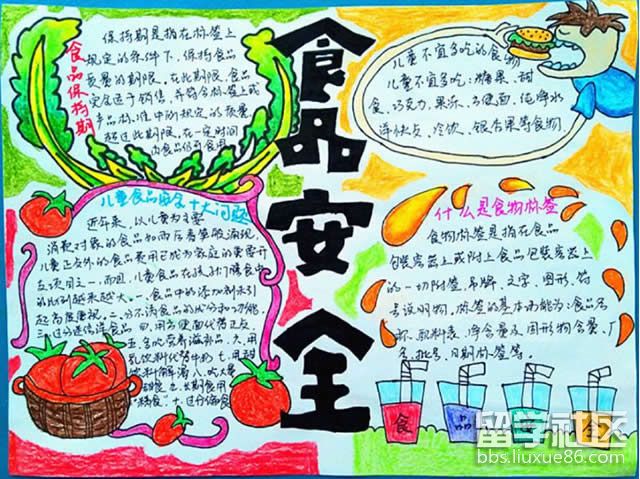 食品安全
食品保持期
保持期是指在标签上
规定的条件下,保持食品
质量的期限。在此期限,食品
完全适于销售,并符合标签上或
产品标准中的规定的质量,
超过此期限,在一定时间
内食品仍可食用
儿童不宜多吃的食物
儿童不宜多吃:糖果、甜
食、巧克力、果冻、方便面、纯净水
洋快歺、冷饮、银杏果等食物.
儿童食品安全十大问题
近年来,以儿童为主要
消费对象的食品如雨后春笋般涌现,
儿童正歺外的食品费用已成为家庭的重要开
支项目之一,而且,儿童食品在孩子们膳食中
的比例越来越大。一.食品中的添加剂未引
起高度重视。二.分不清食品的成份和功能.
三.过分迷信洋食品 四.用方便面代替正歺
五.多吃营养滋补品。六.用
乳饮料代替牛奶 七.用甜
饮料解渴 八.吃大量
甜食 九.长期食用
"精食" 十.过分偏食
什么是食物标签
食物标签是指在食品
包装容器上或附上食品包装容器上
的一切附签、吊牌、文字、图形、符
号说明物。标签的基本功能为:食品名
称、配料表、净含量及固形物含量、厂
名、批号、日期标签等。
食
品
全
留学社区
bbs.liuxue86.com